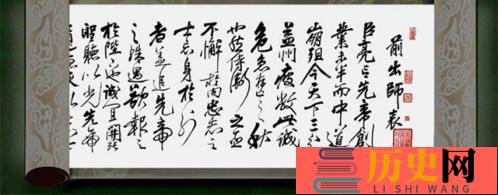 前出師表
臣亮言先帝創
業未半而中道
崩殂今天下三分
益州疲敝此誠
危急存亡之秋
也然侍衛之臣
不懈於內忠志之
士忘身於外
者蓋追先帝
之殊遇欲報之
於陛下也誠宜開張
聖聽以光先帝
历史网
LI SHI WANG